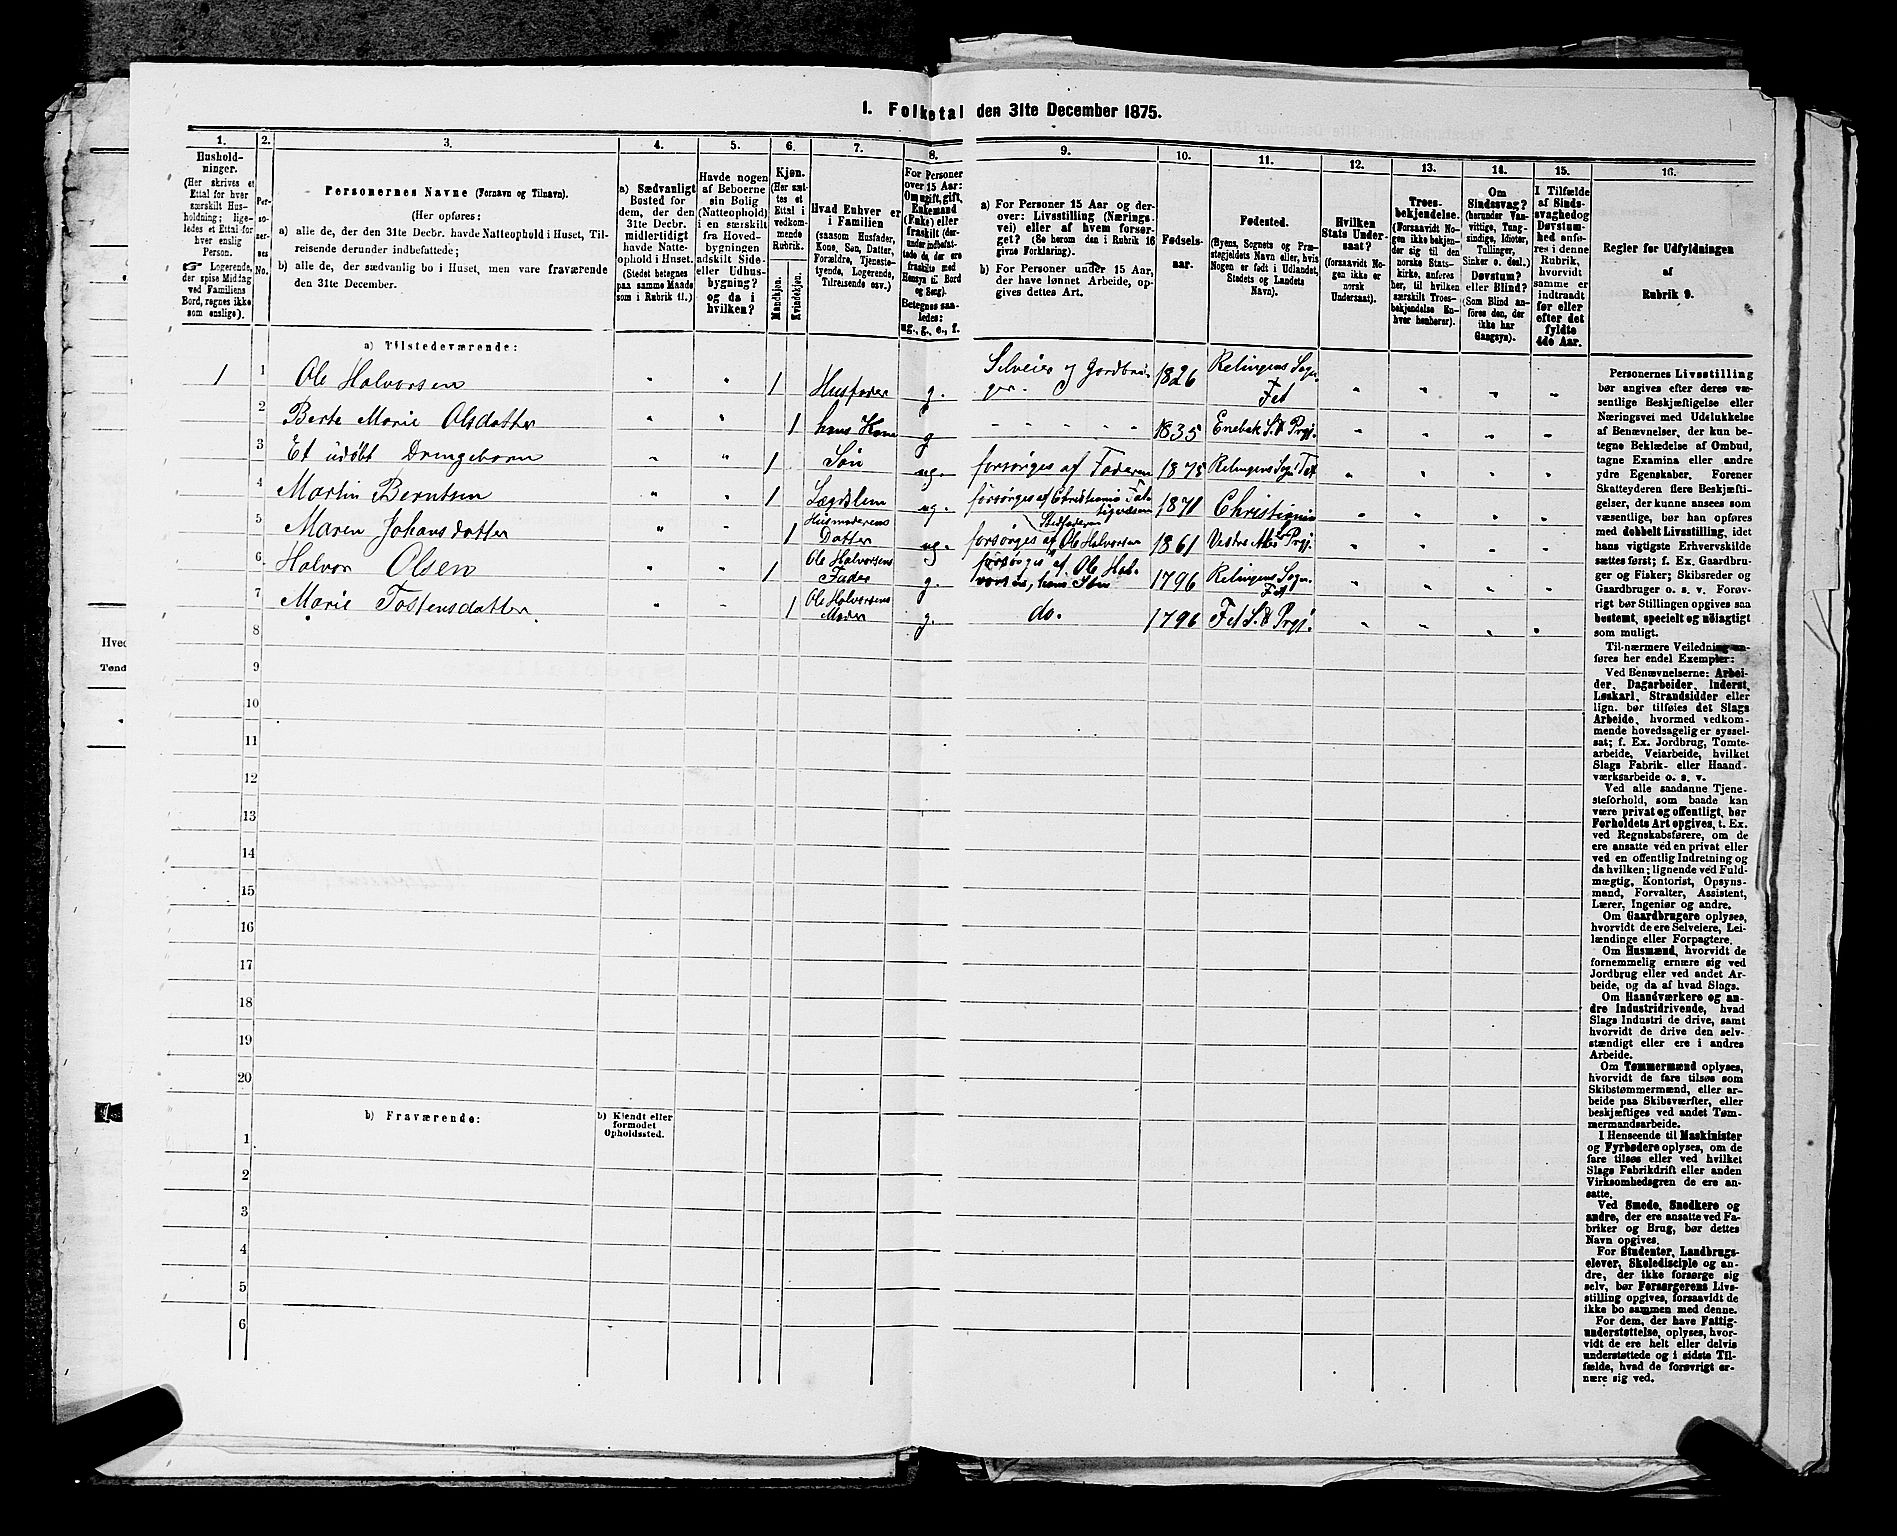 1. Folketal den 31te December 1875.
1. 2. 3. 4. 5. 6. 7. 8. 9. 10. 11. 12. 13. 14. 15. 16.
Hushold-
ninger.
(Her skrives et
Ettal for hver
særskilt Hus-
holdning; lige-
ledes et Ettal for
hver enslig
Person.
☞ Logerende,
der spise Middag
ved Familiens
Bord, regnes ikke
som enslige).
Per-
so-
ner-
nes
No.
Personernes Navne (Fornavn og Tilnavn).
(Her opføres:
a) alle de, der den 31te Decbr. havde Natteophold i Huset, Til-
reisende derunder indbefattede;
b) alle de, der sædvanlig bo i Huset, men vare fraværende
den 31te December.
a) Sædvanligt
Bosted for
dem, der den
31te Decbr.
midlertidigt
havde Natte-
ophold i Huset.
(Stedet betegnes
paa samme Maade
som i Rubrik 11.)
Havde nogen
af Beboerne
sin Bolig
(Natteophold)
i en særskilt
fra Hoved-
bygningen
adskilt Side-
eller Udhus-
bygning?
og da i
hvilken?
Kjøn.
(Her sæt-
tes et
Ettal i
vedkom-
mende
Rubrik.
Mandkjøn.
Kvindekjøn.
Hvad Enhver er
i Familien
(saasom Husfader,
Kone, Søn, Datter,
Forældre, Tjeneste-
tyende, Logerende,
Tilreisende osv.)
For Personer
over 15 Aar:
Om ugift, gift,
Enkemand
(Enke) eller
fraskilt (der-
under indbefat-
tede de, der ere
fraskilte med
Hensyn til Bord
og Seng).
Betegnes saa-
ledes:
ug., g., e., f.
a) For Personer 15 Aar og der-
over: Livsstilling (Nærings-
vei) eller af hvem forsør-
get? (Se herom den i Rubrik 16
givne Forklaring).
b) For Personer under 15 Aar,
der have lønnet Arbeide, op-
gives dettes Art.
Fødsels-
aar.
Fødested.
(Byens, Sognets og Præ-
stegjeldets Navn eller, hvis
Nogen er født i Udlandet,
Stedets og Landets
Navn).
Hvilken
Stats Under-
saat?
(forsaavidt No-
gen ikke er
norsk
Undersaat).
Troes-
bekjendelse.
(Forsaavidt No-
gen ikke bekjen-
der sig til den
norske Stats-
kirke, anføres
her, til hvilken
særskilt Troes-
bekjendelse En-
hver henhører).
Om
Sindssvag?
(herunder Van-
vittige, Tung-
sindige, Idioter,
Tullinger,
Sinker o. desl.)
Døvstum?
eller Blind?
(Som Blind an-
føres den, der
ikke har
Gangsyn).
I Tilfælde
af Sinds-
svaghed og
Døvstum-
hed anfø-
res i denne
Rubrik,
hvorvidt
samme er
indtraadt
før eller
efter det
fyldte
4de Aar.
Regler for Udfyldningen
af
Rubrik 9.
a) Tilstedeværende:
1 1 Ole Halvorsen " " 1 Husfader g. Selveier og Gordbru- 1826 Relingens Sogn " " " "
ger. Fet
2 Berte Marie Olsdatter " " 1 hans Kone g - - - - 1835 Enebak S. & Prgj. " " " "
3 Et udøbt Drengebarn " " 1 Søn ug. forsørges af Faderen 1875 Relingens Sogn Fet " " " "
4 Martin Berntsen " " 1 Lægdslem ug. forsørges af Christiania Fat-
tigvæsen 1871 Christiania " " " "
5 Maren Johansdatter " " 1 Husmoderens
Datter ug. Stedfaderen
forsørges af Ole Halvorsen 1861 Vestre Prgj. " " " "
6 Halvor Olsen " " 1 Ole Halvorsens
Fader g. forsørges af Ole Hal-
vorsen, hans Søn 1796 Relingens Sogn
Fet " " " "
7 Marie Tostensdatter " " 1 Ole Halvorsens
Moder g. do. 1796 Fet S. & Prgj. " " " "
8
9
10
11
12
13
14
15
16
17
18
19
20
b) Fraværende:
b) Kjendt eller
formodet
Opholdssted.
1
2
3
4
5
6
Personernes Livsstilling
bør angives efter deres væ-
sentlige Beskjæftigelse eller
Næringsvei med Udelukkelse
af Benævnelser, der kun be-
tegne Beklædelse af Ombud,
tagne Examina eller andre
ydre Egenskaber. Forener
Skatteyderen flere Beskjæfti-
gelser, der kunne ansees som
væsentlige, bør han opføres
med dobbelt Livsstilling, idet
hans vigtigste Erhvervskilde
sættes først; f. Ex. Gaardbru-
ger og Fisker; Skibsreder og
Gaardbruger o. s. v. Forøv-
rigt bør Stillingen opgives saa
bestemt, specielt og nöiagtigt
som muligt.
Til nærmere Veiledning an-
føres her endel Exempler:
Ved Benævnelserne: Arbei-
der, Dagarbeider, Inderst,
Løskarl, Strandsidder eller
lign. bør tilføies det Slags
Arbeide, hvormed vedkom-
mende hovedsagelig er syssel-
sat; f. Ex. Jordbrug, Tomte-
arbeide, Veiarbeide, hvilket
Slags Fabrik- eller Haand-
værksarbeide o. s. v.
Ved alle saadanne Tjene-
steforhold, som baade kan
være privat og offentligt, bør
Forholdets Art opgives, t. Ex.
ved Regnskabsførere, om de
ere ansatte ved en privat eller
ved en offentlig Indretning og
da hvilken; lignende ved Fuld-
mægtig, Kontorist, Opsyns-
mand, Forvalter, Assistent,
Lærer, Ingeniør og andre.
Om Gaardbrugere oplyses,
hvorvidt de ere Selveiere, Lei-
lændinge eller Forpagtere.
Om Husmænd, hvorvidt de
fornemmelig ernære sig ved
Jordbrug eller ved andet Ar-
beide, og da af hvad Slags.
Om Haandværkere og an-
dre Industridrivende, hvad
Slags Industri de drive, samt
hvorvidt de drive den selv-
stændigt eller ere i andres
Arbeide.
Om Tømmermænd oplyses,
hvorvidt de fare tilsøs som
Skibstømmermænd, eller ar-
beide paa Skibsværfter, eller
beskjæftiges ved andet Tøm-
mermandsarbeide.
I Henseende til Maskinister
og Fyrbødere oplyses, om de
fare tilsøs eller ved hvilket
Slags Fabrikdrift eller anden
Virksomhedsgren de ere an-
satte.
Ved Smede, Snedkere og
andre, der ere ansatte ved Fa-
briker og Brug, bør dettes
Navn opgives.
For Studenter, Landbrugs-
elever, Skoledisciple og an-
dre, der ikke forsørge sig
selv, bør Forsørgerens Livs-
stilling opgives, forsaavidt de
ikke bo sammen med denne.
For dem, der have Fattig-
understøttelse, oplyses, hvor-
vidt de ere helt eller delvis
understøttede og i sidste Til-
fælde, hvad de forøvrigt er-
nære sig ved.
Hved
Tønd